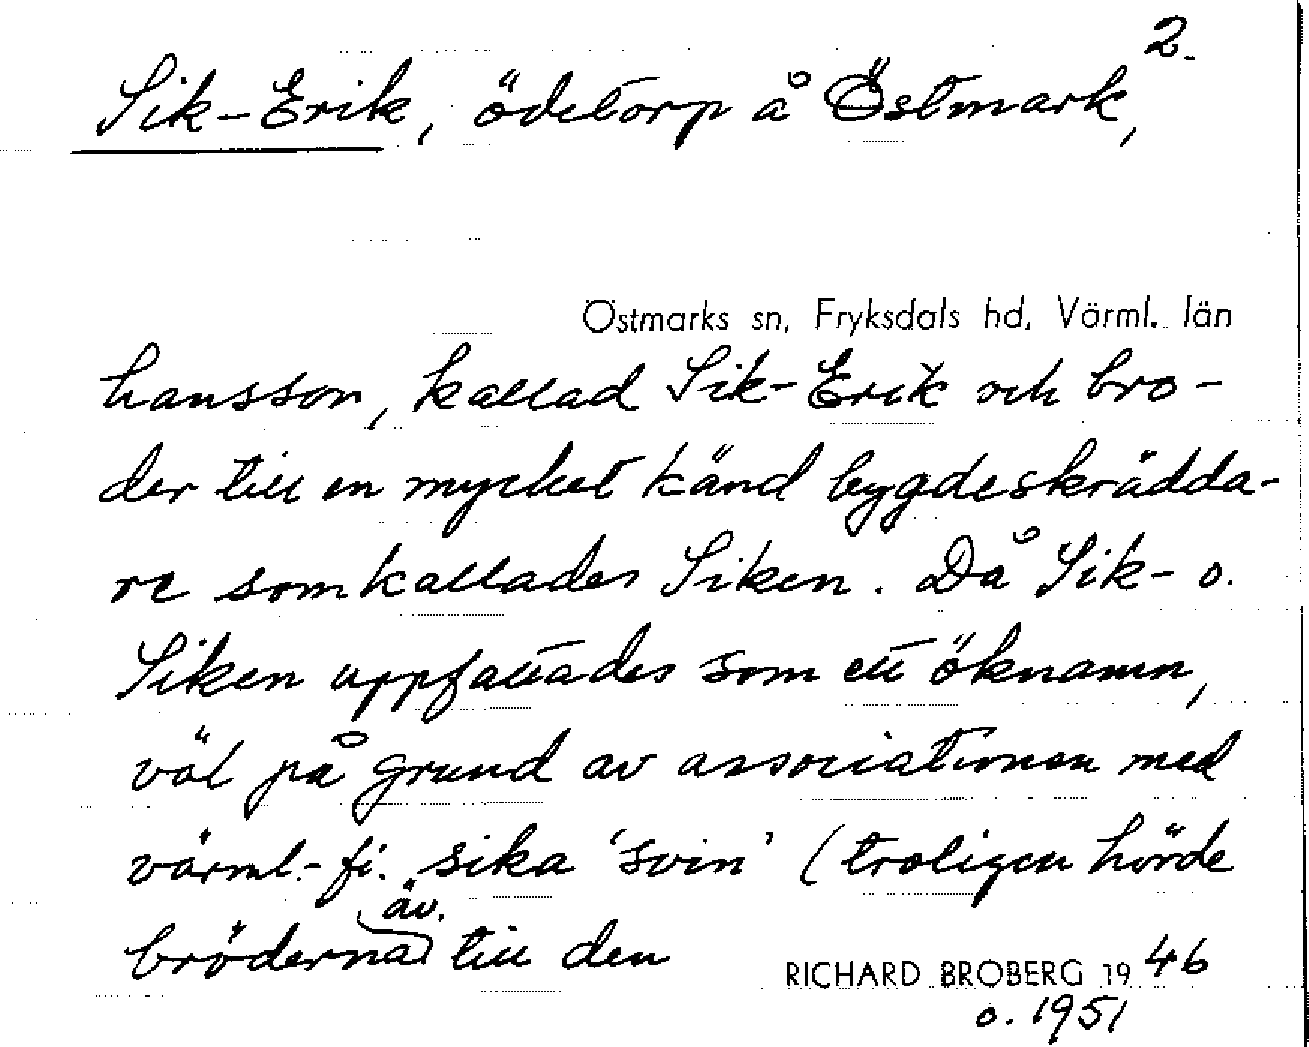 2.
Sik-Erik, ödetorp å Östmark,
Östmarks sn, Fryksdals hd, Värml. län
hansson, kallad Sik-Erik och bro-
der till en mycket känd bygdeskrädda-
re som kallades Siken. Då Sik- o.
Siken uppfattades som ett öknamn,
väl på grund av associationen med
värml.-fi. sika 'svin' (troligen hörde
bröderna äv. till den
RICHARD BROBERG 1946
o. 1951